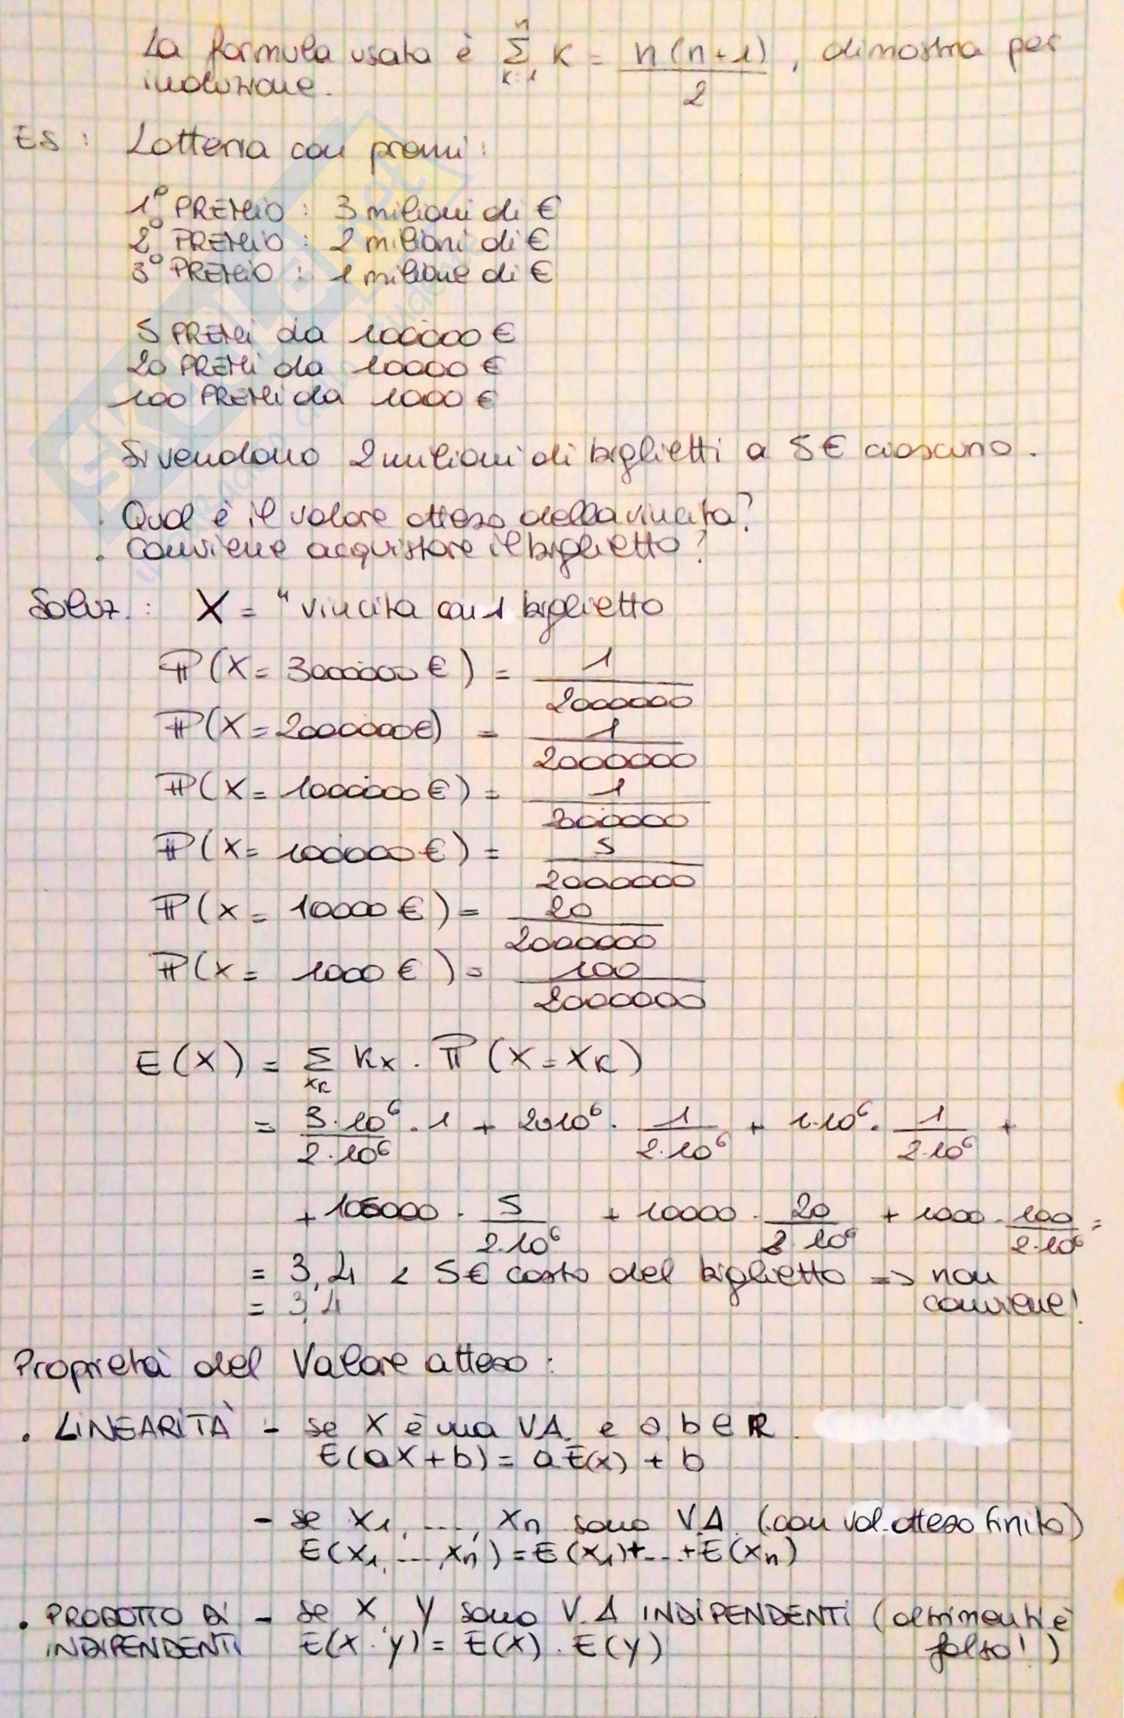 La formula usata è n Σ k=1 K = n(n+1) / 2 , dimostra per
induzione.
ES : Lotteria con premi :
1° PREMIO : 3 milioni di €
2° PREMIO : 2 milioni di €
3° PREMIO : 1 milione di €
5 PREMI da 100000 €
20 PREMI da 10000 €
100 PREMI da 1000 €
Si vendono 2 milioni di biglietti a 5€ ciascuno.
. Qual è il valore atteso della vincita?
. Conviene acquistare il biglietto?
Soluz. : X = " vincita con 1 biglietto
P(X = 3000000 €) = 1 / 2000000
P(X = 2000000€) = 1 / 2000000
P(X = 1000000 €) = 1 / 2000000
P(X = 100000 €) = 5 / 2000000
P(X = 10000 €) = 20 / 2000000
P(X = 1000 €) = 100 / 2000000
E(X) = Σ xk Kx . P(X = XK)
= 3·10⁶ / 2·10⁶ · 1 + 2·10⁶ · 1 / 2·10⁶ + 1·10⁶ · 1 / 2·10⁶ +
+ 100000 · 5 / 2·10⁶ + 10000 · 20 / 2·10⁶ + 1000 · 100 / 2·10⁶ =
= 3,4 < 5€ costo del biglietto => non
= 3,4 conviene!
Proprietà del Valore atteso :
. LINEARITÀ - se X è una V.A. e a, b ∈ R
E(aX + b) = a E(x) + b
- se X1, ...., Xn sono V.A. (con val. atteso finito)
E(X1, ..., Xn) = E(X1)+...+E(Xn)
. PRODOTTO DI - se X, Y sono V.A INDIPENDENTI (altrimenti è
INDIPENDENTI E(X · Y) = E(X) . E(Y) falso!)